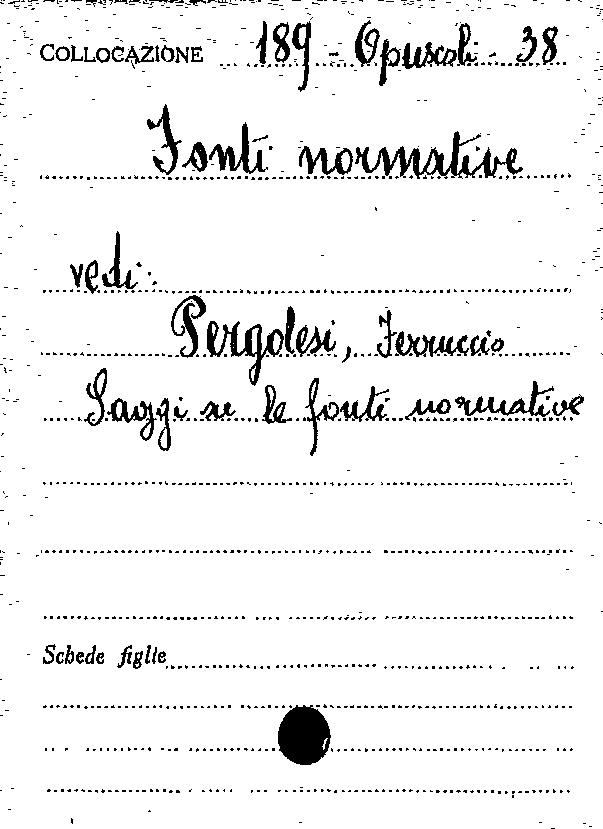 COLLOCAZIONE 189 - Opuscoli - 38
Fonti normative
vedi:
Pergolesi, Ferruccio
Saggi su le fonti normative
Schede figlie